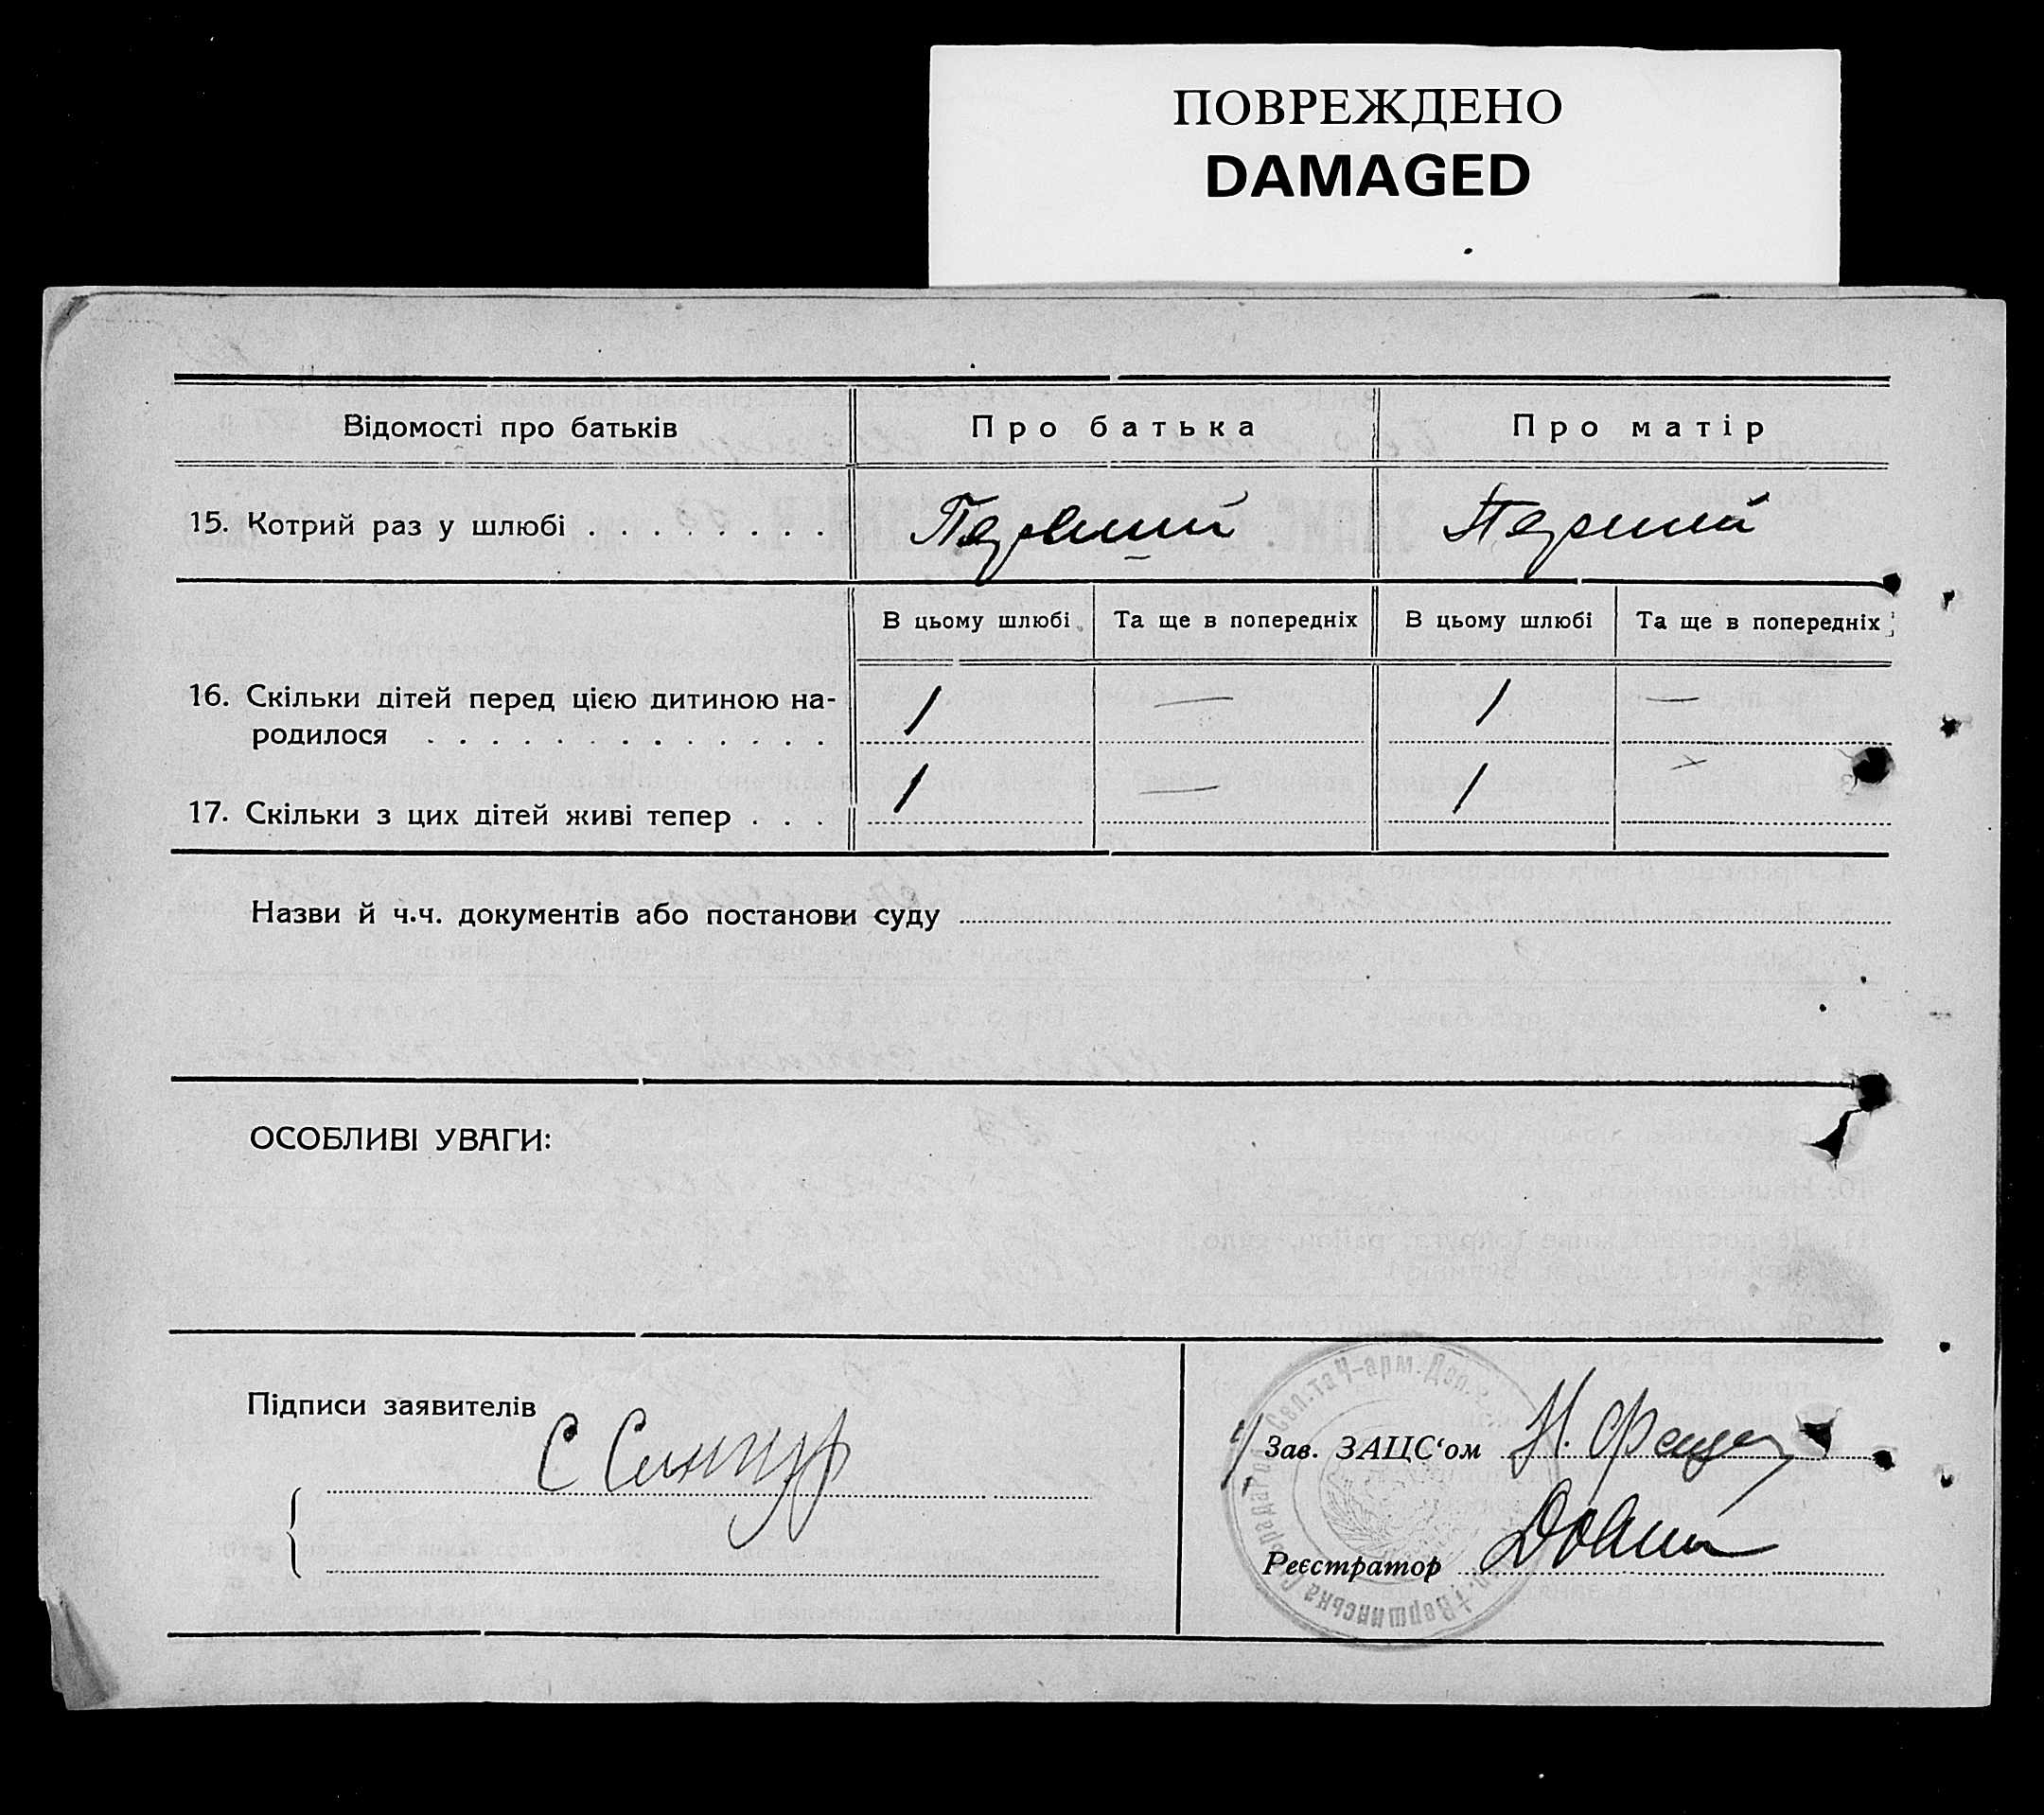 ПОВРЕЖДЕНО
DAMAGED
Відомості про батьків
Про батька
Про матір
15. Котрий раз у шлюбі . . . . . . . .
Первший
Перший
В цьому шлюбі
Та ще в попередніх
В цьому шлюбі
Та ще в попередніх
16. Скільки дітей перед цією дитиною на-
родилося . . . . . . . . . . . . . .
1
—
1
—
17. Скільки з цих дітей живі тепер . . .
1
—
1
Назви й ч.ч. документів або постанови суду
ОСОБЛИВІ УВАГИ:
Підписи заявителів
С Сингур
Зав. ЗАЦС‘ом
Н.
Реєстратор
Вершинська